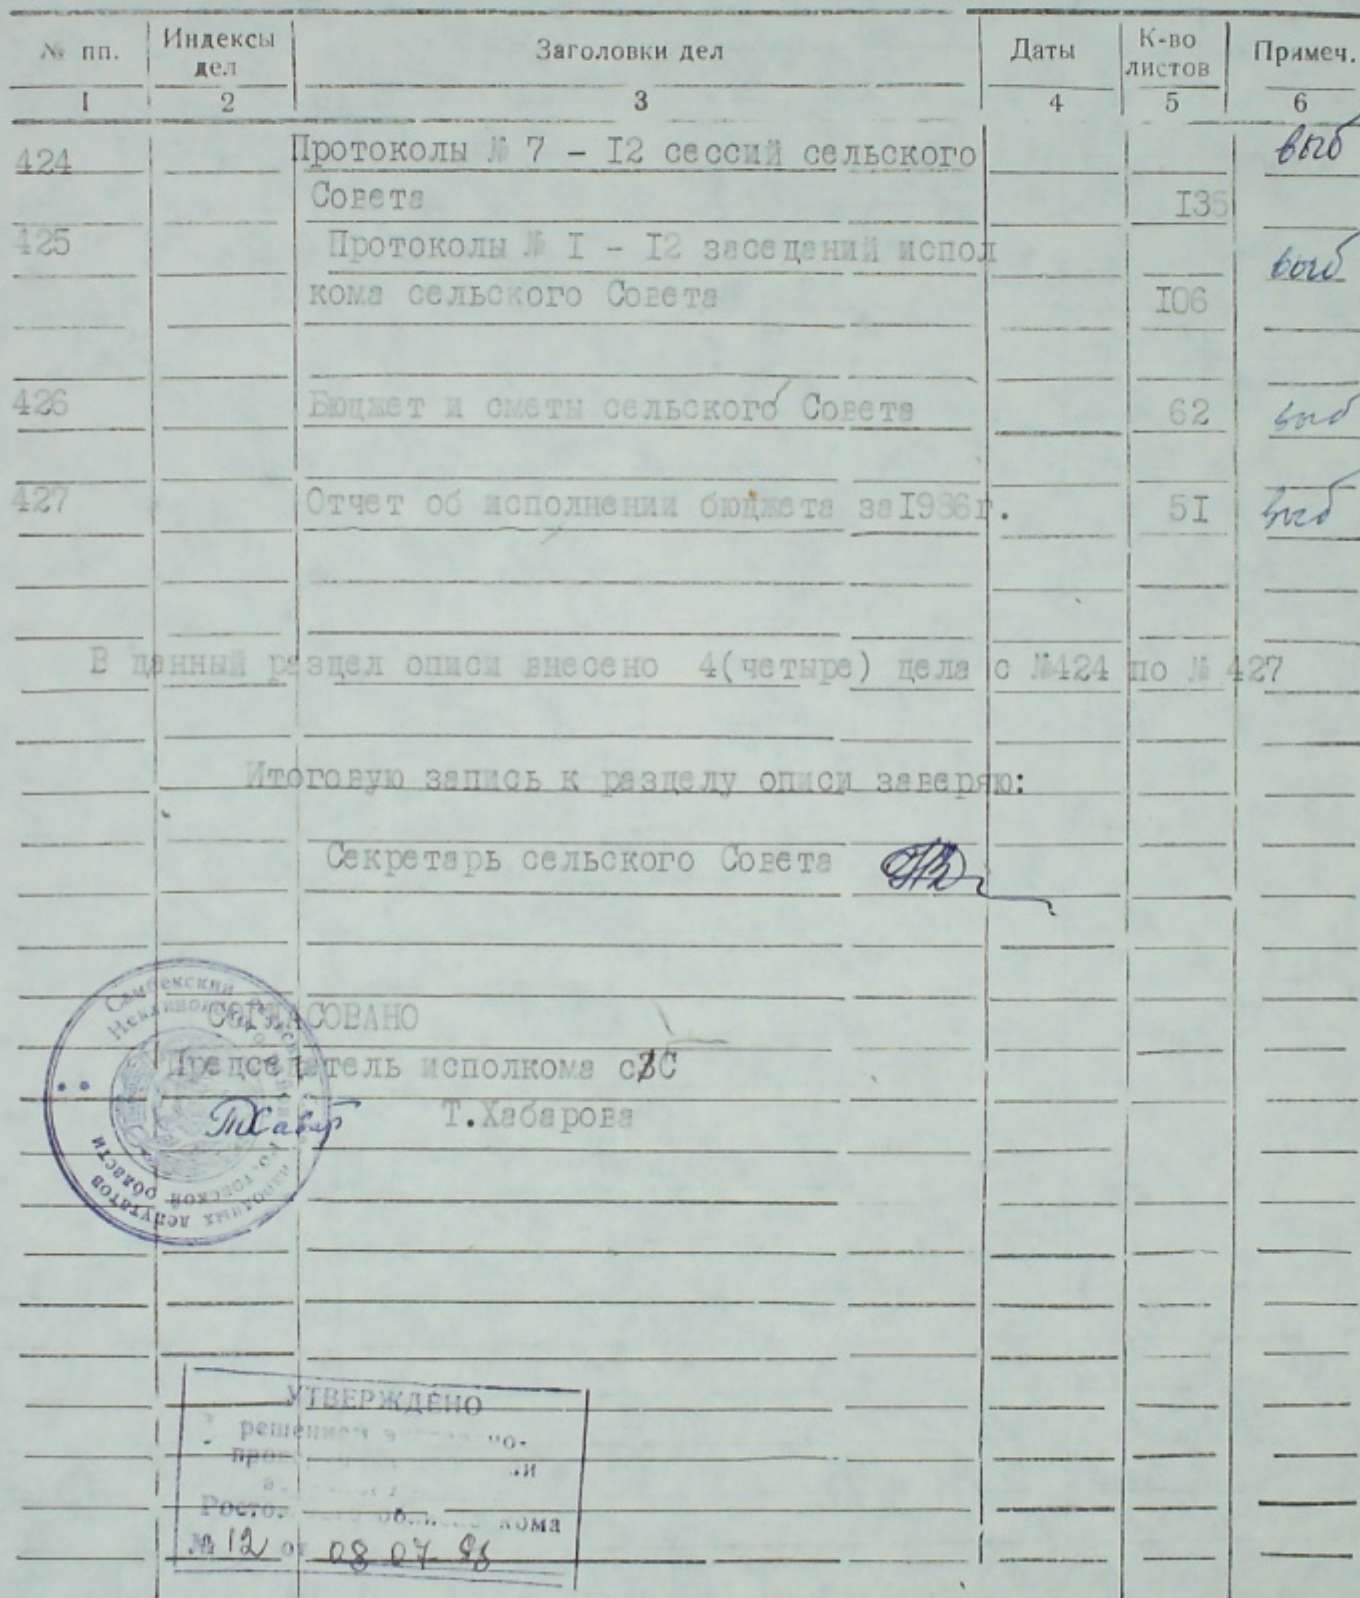 № пп. Индексы дел Заголовки дел Даты К-во листов Примеч.
I 2 3 4 5 6
424 Протоколы № 7 - I2 сессий сельского выб
Совета I35
425 Протоколы № I - I2 заседаний испол выб
кома сельского Совета I06
426 Бюджет и сметы сельского Совета 62 выб
427 Отчет об исполнении бюджета за I986г. 5I выб
В данный раздел описи внесено 4(четыре) дела с №424 по № 427
Итоговую запись к разделу описи заверяю:
Секретарь сельского Совета
Самбекский
народных депутатов
Ростовской области
СОГЛАСОВАНО
Председатель исполкома с/С
Т.Хабарова
УТВЕРЖДЕНО
решением
№ 12 от 08 07